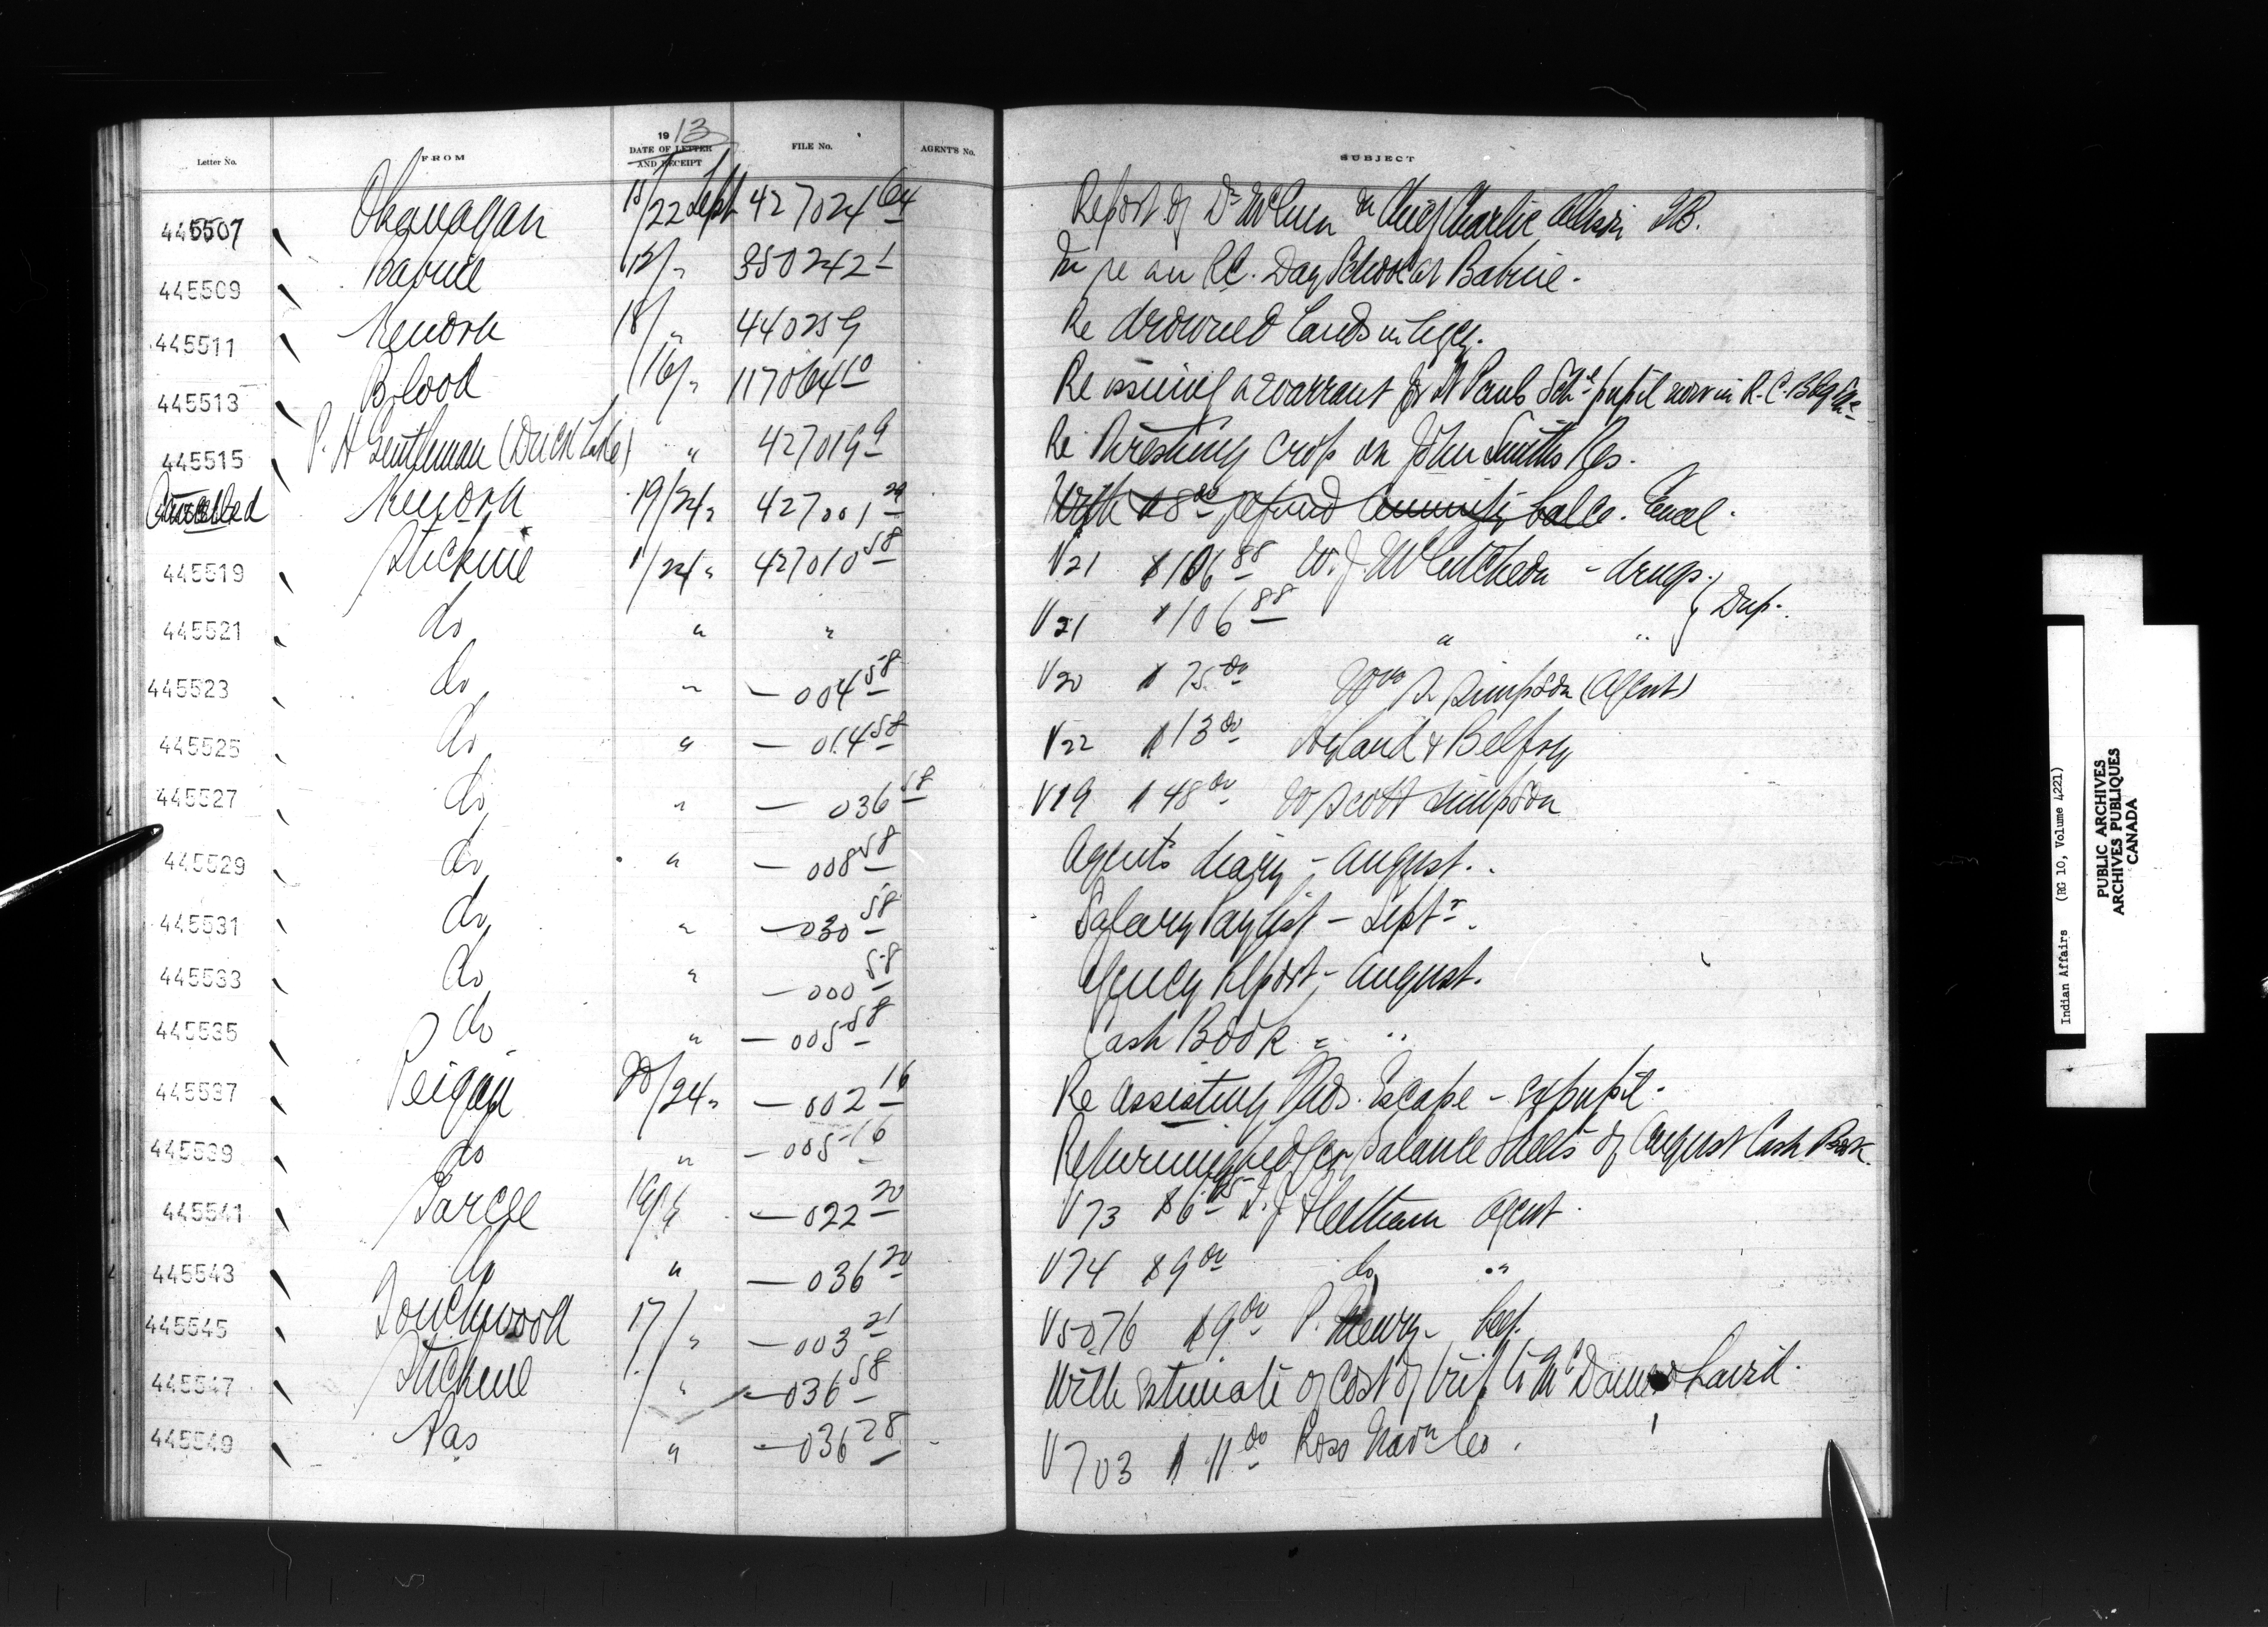 Letter No. FROM 1913 DATE OF LETTER AND RECEIPT FILE No. AGENT'S No. SUBJECT
445507 Okanagan 15/22 Sept 427024 64 Report of Dr Chief Charlie T.B.
445509 Babine 12/" 350242 1 In re an R.C. Day School at Babine.
445511 Kenora 18/" 440259 Re drowned lands in Agcy.
445513 Blood 16/" 117064 10 Re issuing a warrant for St Pauls Schl pupil now in R.C. Bdg
445515 P. H Gentleman (Duck Lake) " 427019 9 Re threshing crop on John Smith's Res.
Cancelled Kenora 19/24 " 427001 29 With $8 00 refund Annuity balce. Encl.
445519 Stickine 11/24 " 427010 58 V21 $106 88 W. J. McCutcheon - drugs.
445521 do " " V21 $106 88 " " } Dup.
445523 do " — 004 58 V20 $75 00 Wm S. Simpson (Agent)
445525 do " — 014 58 V22 $13 00 Hyland & Belfry
445527 do " — 036 58 V19 $48 00 W Scott Simpson
445529 do " — 008 58 Agent's diary - August.
445531 do " — 030 58 Salary Paylist - Septr.
445533 do " — 000 58 Agency Report - August.
445535 do " — 005 58 Cash Book - "
445537 Peigan 20/24 " — 002 16 Re assisting Thos. Escape - expupil.
445539 do " — 005 16 Returning ledger balance sheets of August Cash Book.
445541 Sarcee 19/" — 022 20 V73 $6 T. J. Fleetham Agent.
445543 do " — 036 20 V74 $9 00 do "
445545 Touchwood 17/" — 003 21 V5076 $9 00 P. beef.
445547 Stickine " — 036 58 With estimate of cost of trip to McDames & Laird.
445549 Nas " — 036 28 V703 $11 00 Ross Navn Co.
Indian Affairs (RG 10, Volume 4221)
PUBLIC ARCHIVES
ARCHIVES PUBLIQUES
CANADA